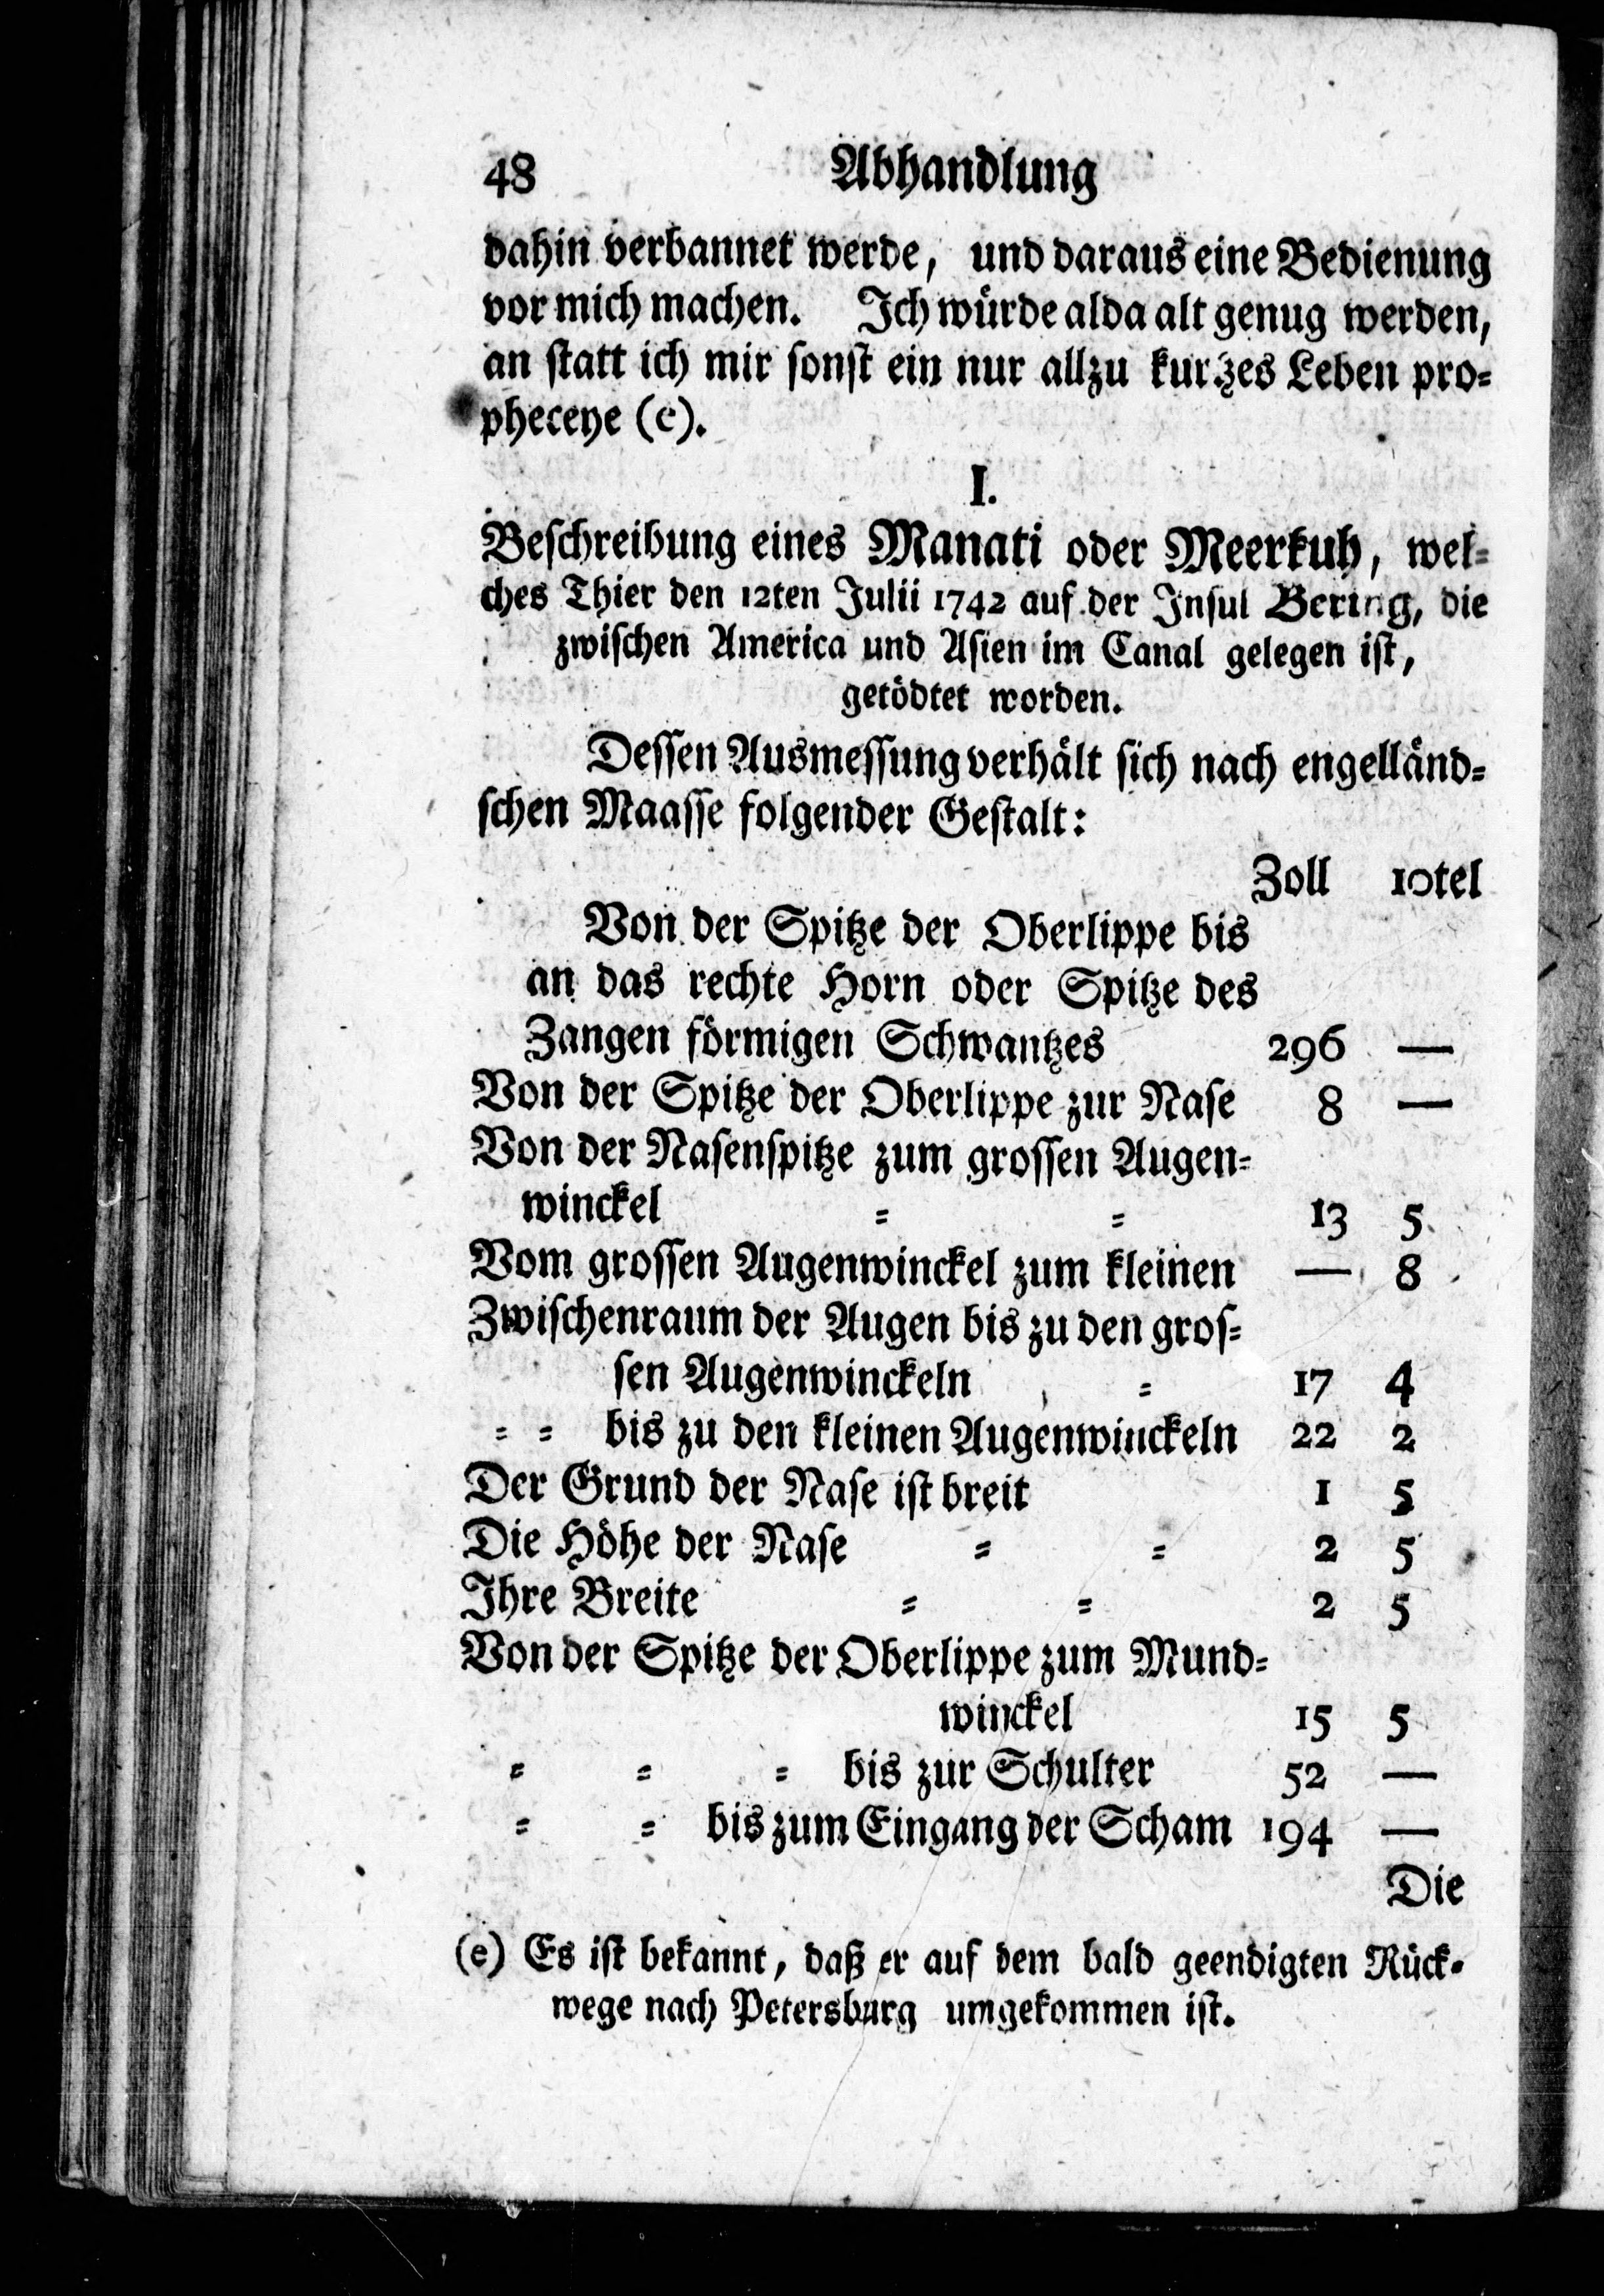 48 Abhandlung
dahin verbannet werde, und daraus eine Bedienung
vor mich machen. Ich würde alda alt genug werden,
an statt ich mir sonst ein nur allzu kurzes Leben pro=
pheceye (e).
I.
Beschreibung eines Manati oder Meerkuh, wel=
ches Thier den 12ten Julii 1742 auf der Insul Bering, die
zwischen America und Asien im Canal gelegen ist,
getödtet worden.
Dessen Ausmessung verhält sich nach engelländ=
schen Maasse folgender Gestalt:
Zoll 10tel
Von der Spitze der Oberlippe bis
an das rechte Horn oder Spitze des
Zangen förmigen Schwantzes 296 —
Von der Spitze der Oberlippe zur Nase 8 —
Von der Nasenspitze zum grossen Augen=
winckel = = 13 5
Vom grossen Augenwinckel zum kleinen — 8
Zwischenraum der Augen bis zu den gros=
sen Augenwinckeln = 17 4
= = bis zu den kleinen Augenwinckeln 22 2
Der Grund der Nase ist breit 1 5
Die Höhe der Nase = = 2 5
Ihre Breite = = 2 5
Von der Spitze der Oberlippe zum Mund=
winckel 15 5
= = = bis zur Schulter 52 —
= = bis zum Eingang der Scham 194 —
Die
(e) Es ist bekannt, daß er auf dem bald geendigten Rück=
wege nach Petersburg umgekommen ist.